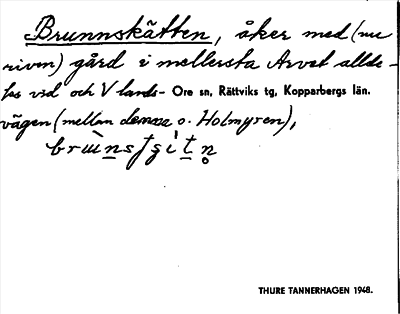 Brunnskätten, åker med (nu
riven) gård i mellersta Arvet allde-
les vid och V lands- Ore sn, Rättviks tg, Kopparbergs län.
vägen (mellan denna o. Holmyren),
THURE TANNERHAGEN 1948.